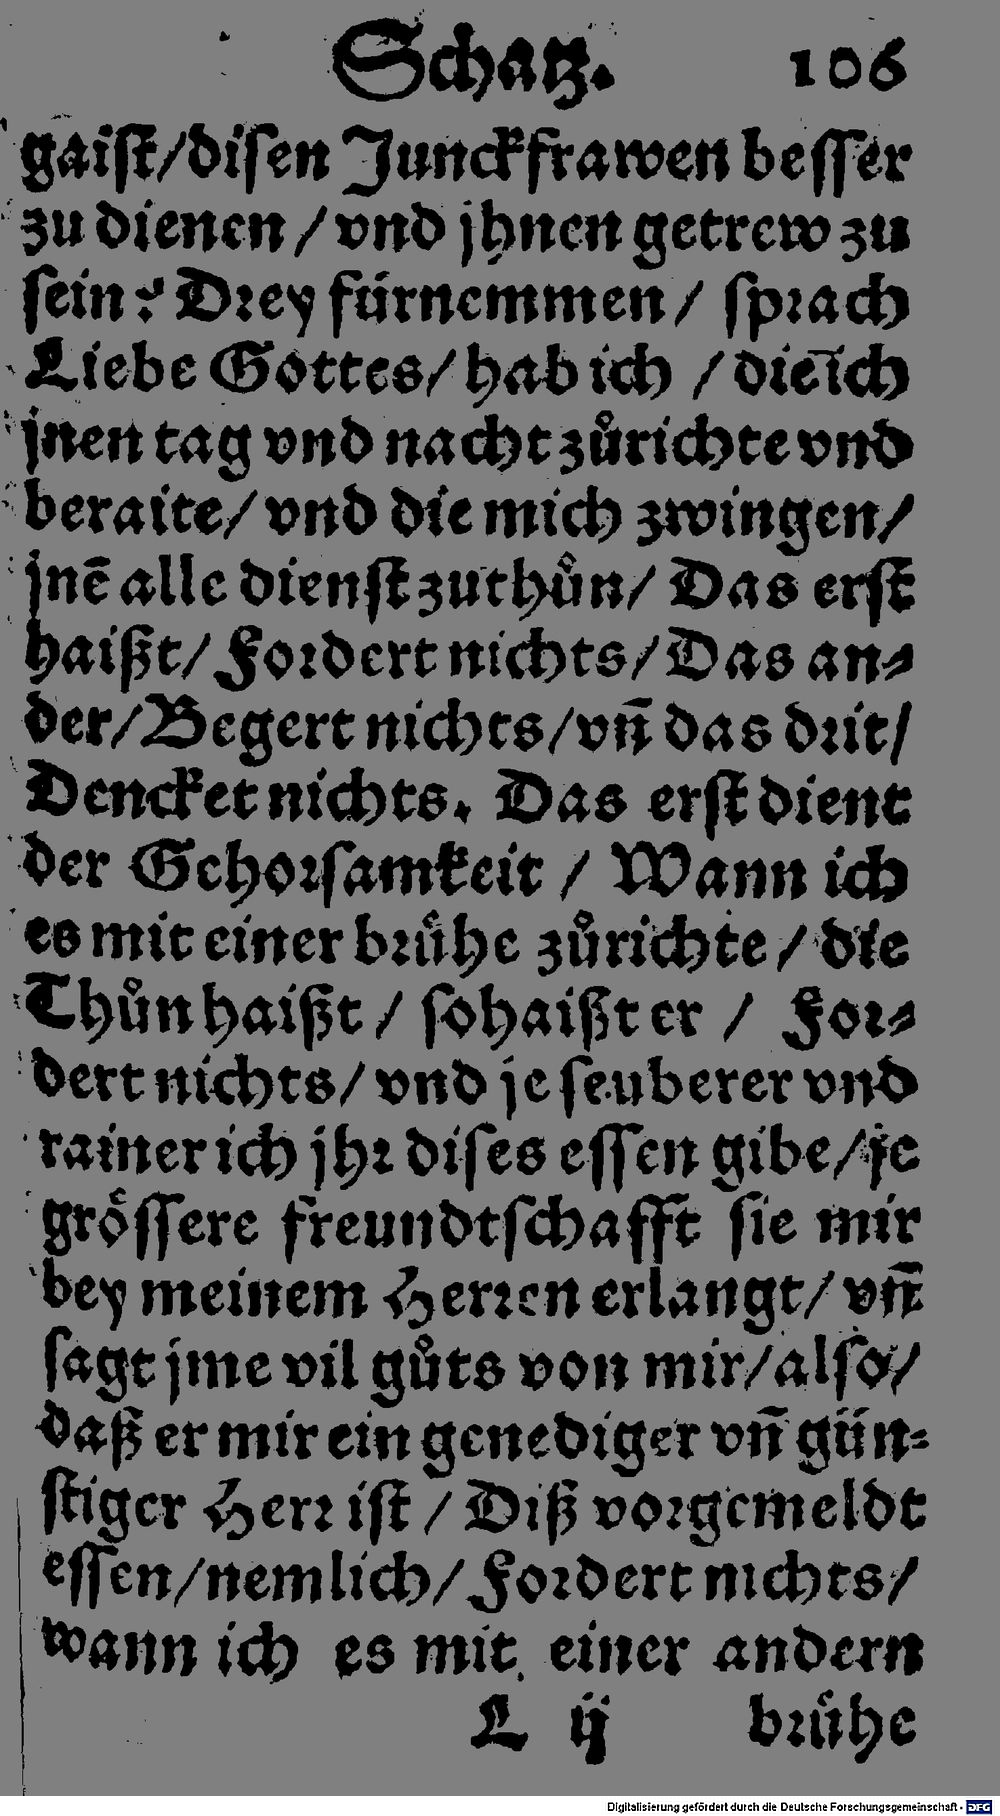 Schatz. 106
gaiſt/diſen Junckfrawen beſſer
zu dienen / vnd jhnen getrew zu
ſein? Drey fürnemmen / ſprach
Liebe Gottes / hab ich / die ich
jnen tag vnd nacht zůrichte vnd
beraite / vnd die mich zwingen /
jnē alle dienſt zuthůn / Das erſt
haißt / Fordert nichts / Das an⸗
der / Begert nichts / vñ das drit /
Dencket nichts. Das erſt dient
der Gehorſamkeit / Wann ich
es mit einer bruͤhe zůrichte / die
Thůn haißt / ſo haißt er / For⸗
dert nichts / vnd je ſeuberer vnd
rainer ich jhr diſes eſſen gibe / je
groͤſſere freundtſchafft ſie mir
bey meinem Herren erlangt / vñ
ſagt jme vil gůts von mir / alſo /
daß er mir ein genediger vñ gün⸗
ſtiger Herr iſt / Diß vorgemeldt
eſſen / nemlich / Fordert nichts /
wann ich es mit einer andern
L ij bruͤhe
Digitalisierung gefördert durch die Deutsche Forschungsgemeinschaft - DFG